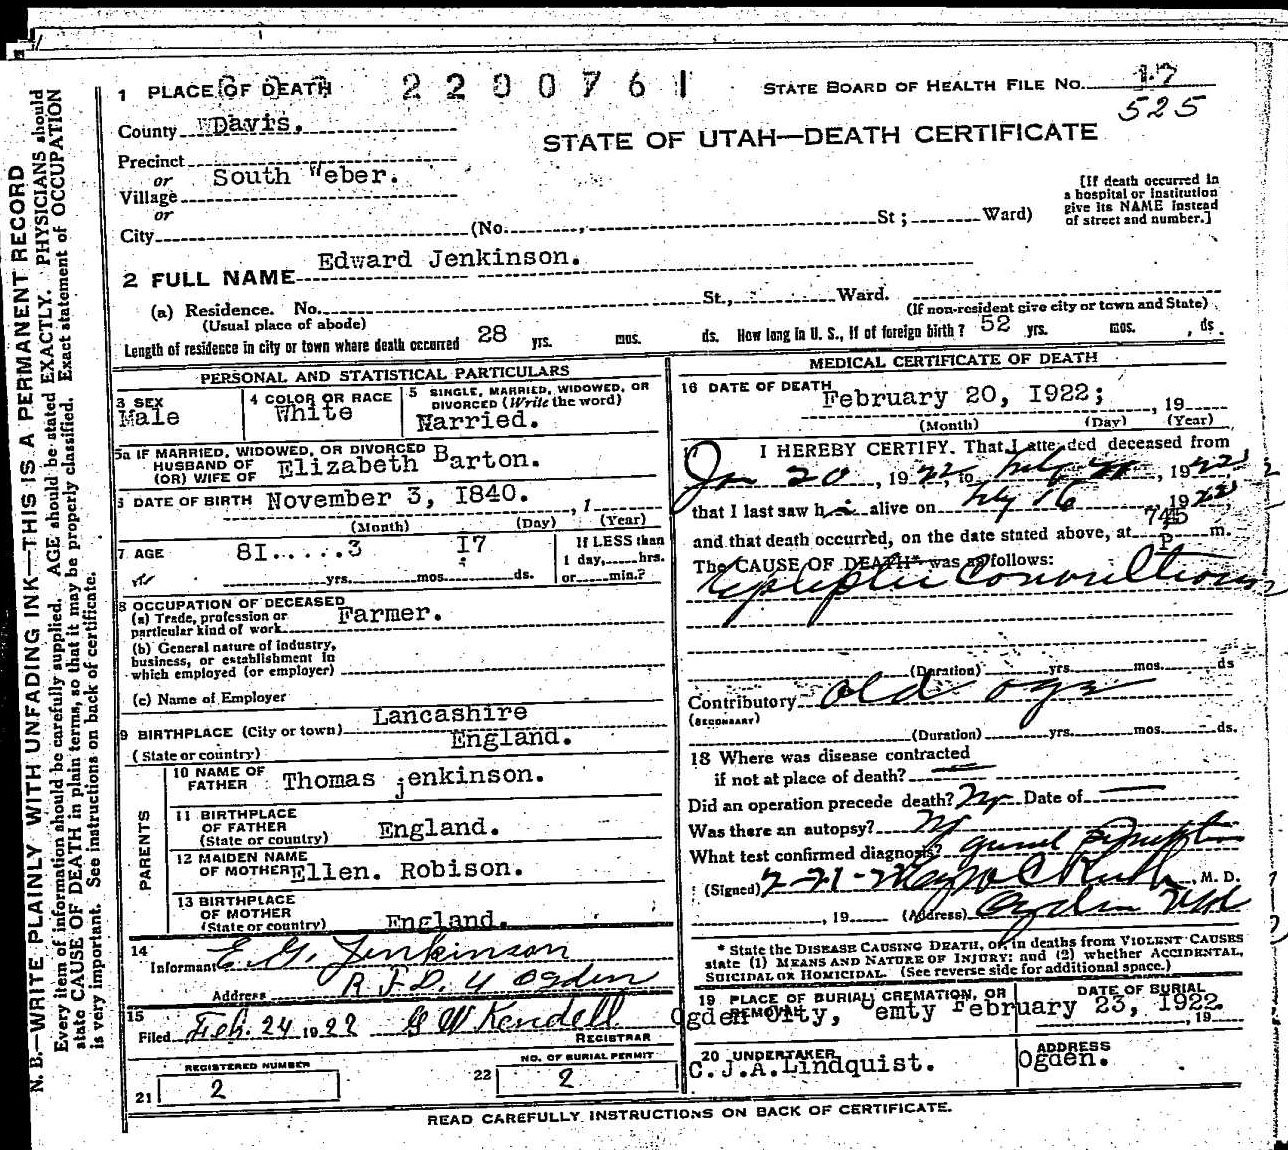 1 PLACE OF DEATH 2200761 STATE BOARD OF HEALTH FILE No. 17
525
County Davis.
STATE OF UTAH—DEATH CERTIFICATE
Precinct
or South Weber.
Village
or
City (No. St; Ward)
[If death occurred in
a hospital or institution
give its NAME instead
of street and number.]
2 FULL NAME Edward Jenkinson.
(a) Residence. No. St., Ward.
(Usual place of abode) (If non-resident give city or town and State)
Length of residence in city or town where death occurred 28 yrs. mos. ds. How long in U. S., if of foreign birth? 52 yrs. mos. ds.
PERSONAL AND STATISTICAL PARTICULARS
3 SEX Male
4 COLOR OR RACE White
5 SINGLE, MARRIED, WIDOWED, OR
DIVORCED (Write the word)
Married.
5a IF MARRIED, WIDOWED, OR DIVORCED
HUSBAND OF
(OR) WIFE OF Elizabeth Barton.
6 DATE OF BIRTH November 3, 1840. , 1
(Month) (Day) (Year)
7 AGE 81.....3 17
yrs. mos. ds.
If LESS than
1 day, hrs.
or min.?
8 OCCUPATION OF DECEASED
(a) Trade, profession or
particular kind of work Farmer.
(b) General nature of industry,
business, or establishment in
which employed (or employer)
(c) Name of Employer
9 BIRTHPLACE (City or town) Lancashire
(State or country) England.
PARENTS
10 NAME OF
FATHER Thomas jenkinson.
11 BIRTHPLACE
OF FATHER
(State or country) England.
12 MAIDEN NAME
OF MOTHER Ellen. Robison.
13 BIRTHPLACE
OF MOTHER
(State or country) England.
14
Informant E. G. Jenkinson
Address R.F.D. 4 Ogden
15
Filed Feb. 24 1922 G W Kendell
REGISTRAR
REGISTERED NUMBER
21 2
NO. OF BURIAL PERMIT
22 2
MEDICAL CERTIFICATE OF DEATH
16 DATE OF DEATH
February 20, 1922; , 19
(Month) (Day) (Year)
17 I HEREBY CERTIFY. That I attended deceased from
Jan 20, 1922, to Feby 1922
that I last saw h alive on Feby 16 1922
and that death occurred, on the date stated above, at 745 P m.
The CAUSE OF DEATH* was as follows:
Epileptic Convultions
(Duration) yrs. mos. ds
Contributory old age
(SECONDARY)
(Duration) yrs. mos. ds.
18 Where was disease contracted
if not at place of death?
Did an operation precede death? No Date of
Was there an autopsy? No
What test confirmed diagnosis?
(Signed) 2-21-22 M. D.
, 19 (Address) Ogden Utah
* State the DISEASE CAUSING DEATH, or, in deaths from VIOLENT CAUSES
state (1) MEANS AND NATURE OF INJURY: and (2) whether ACCIDENTAL,
SUICIDAL OR HOMICIDAL. (See reverse side for additional space.)
19 PLACE OF BURIAL, CREMATION, OR
REMOVAL
DATE OF BURIAL
Ogden City, Cemty February 23, 1922.
, 19
20 UNDERTAKER
C.J.A.Lindquist.
ADDRESS
Ogden.
READ CAREFULLY INSTRUCTIONS ON BACK OF CERTIFICATE.
N. B.—WRITE PLAINLY WITH UNFADING INK—THIS IS A PERMANENT RECORD
Every item of information should be carefully supplied. AGE should be stated EXACTLY. PHYSICIANS should
state CAUSE OF DEATH in plain terms, so that it may be properly classified. Exact statement of OCCUPATION
is very important. See instructions on back of certificate.